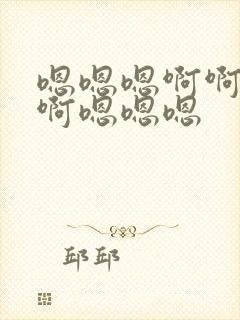 嗯嗯嗯啊啊
啊嗯嗯嗯
邱邱